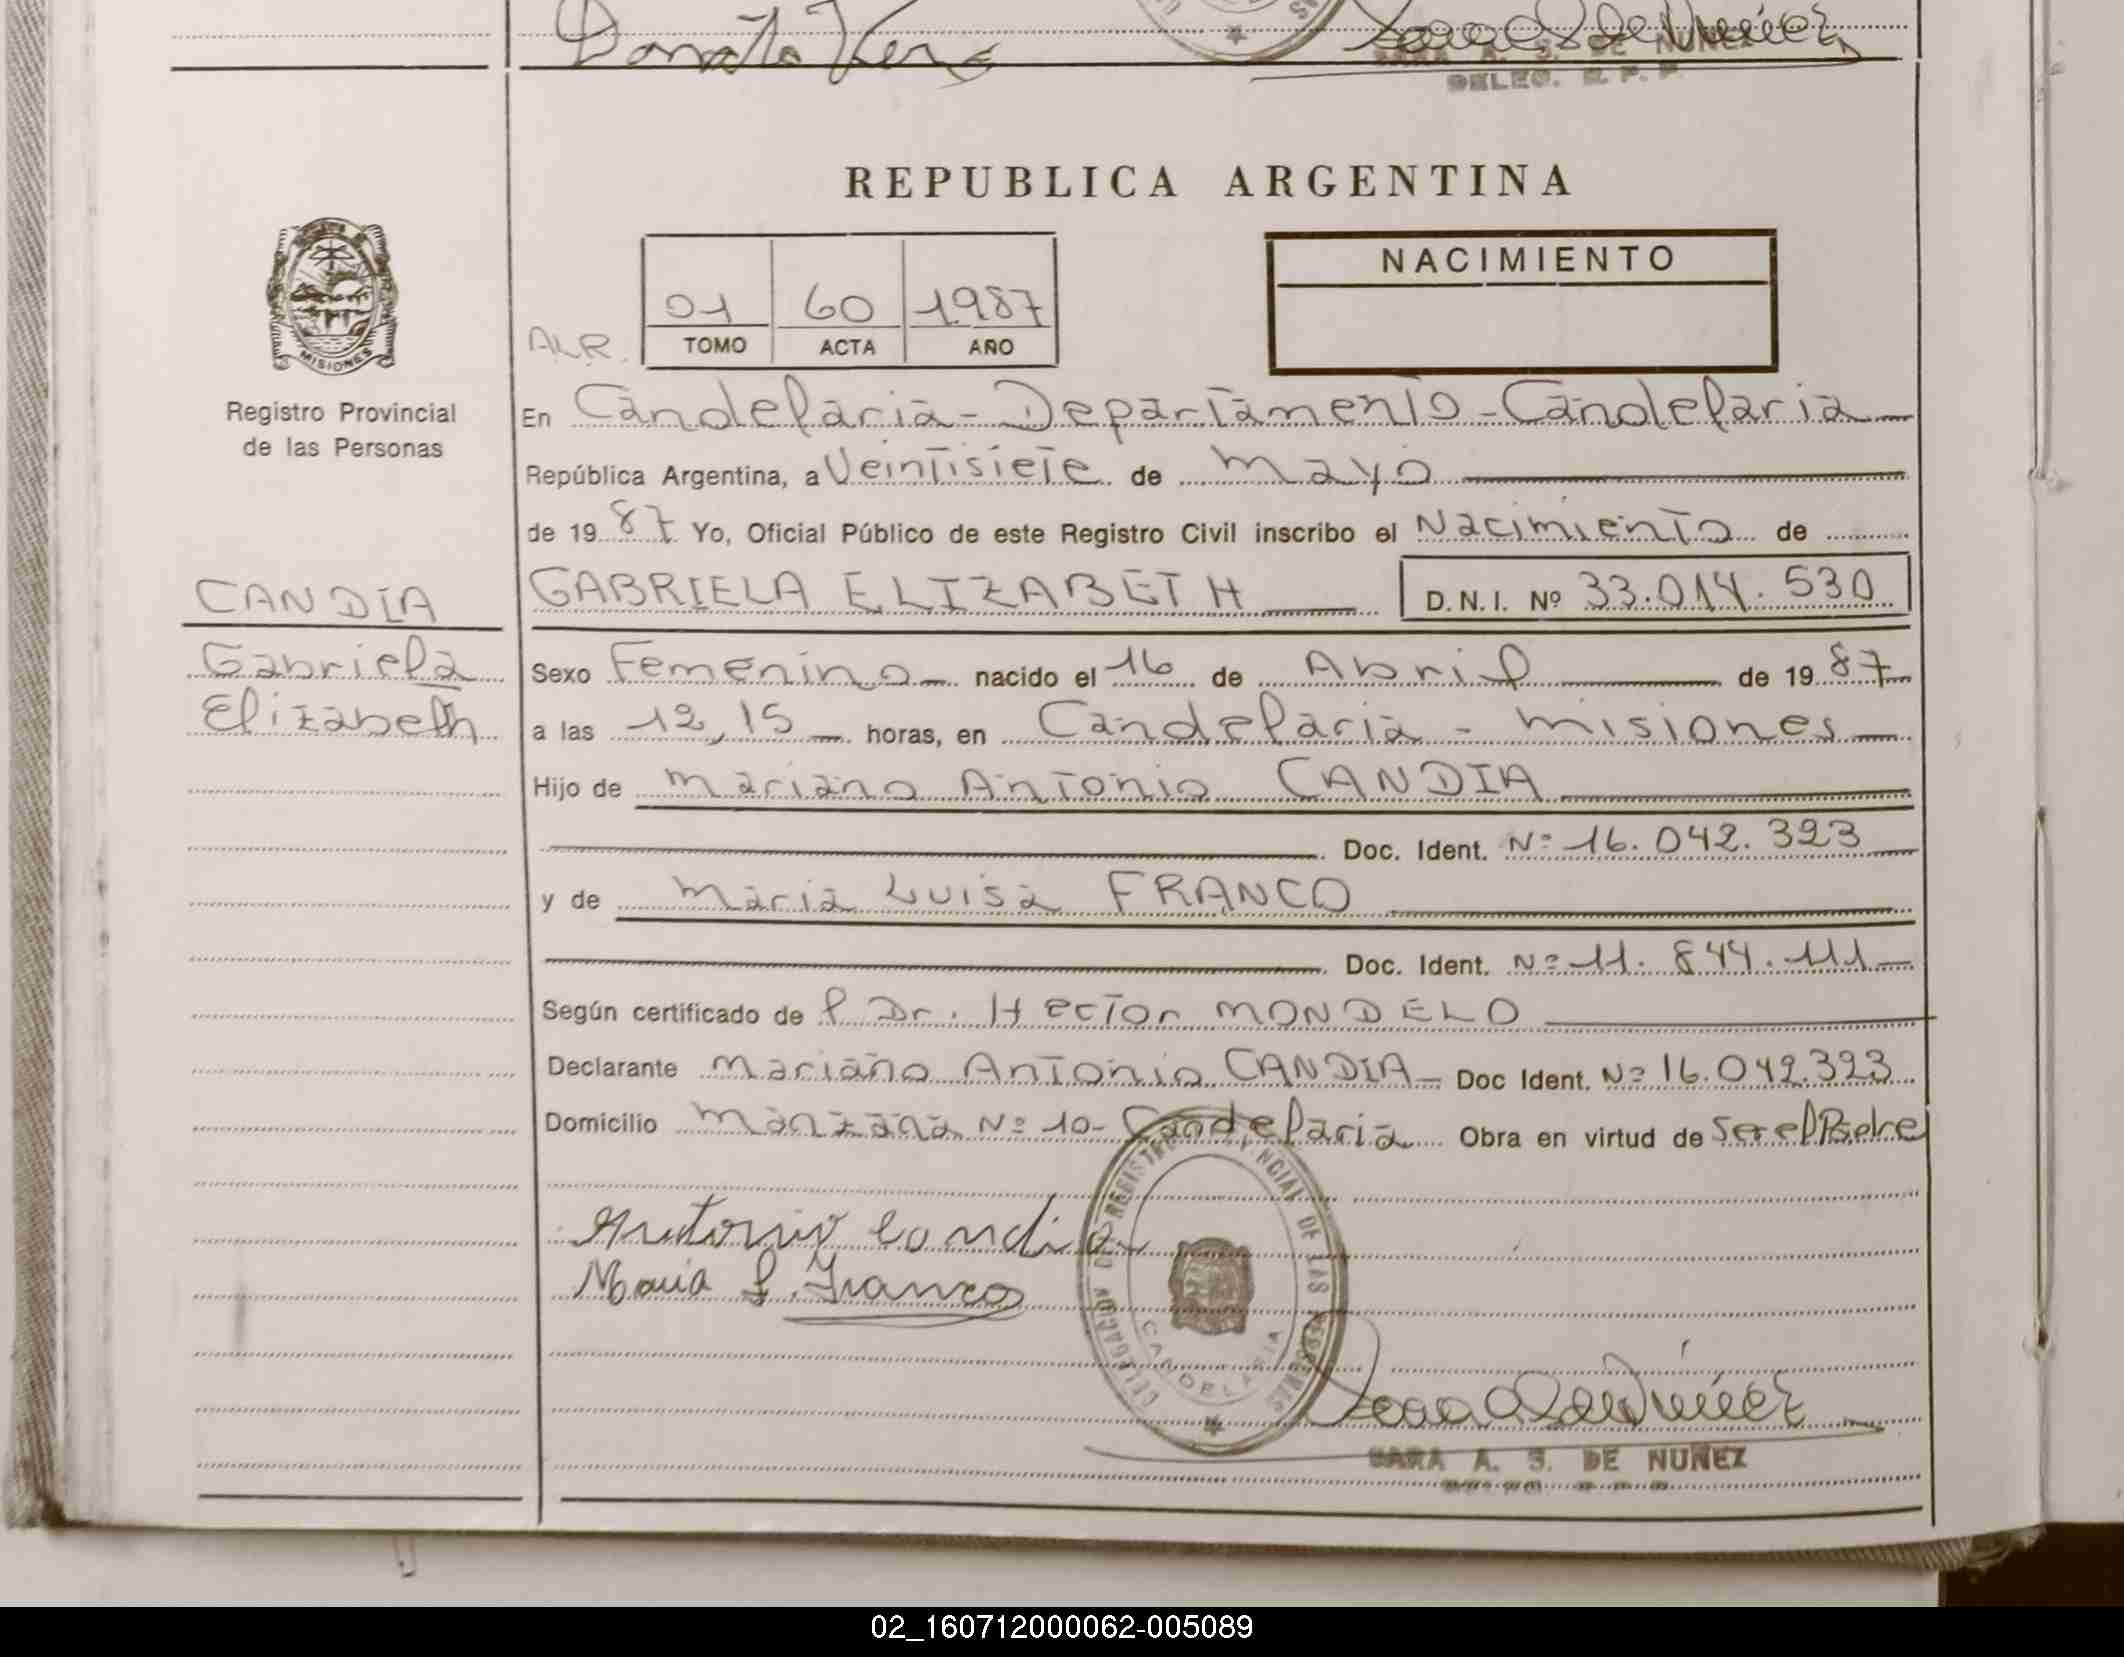 Donato Vera
SARA A. S. DE NUÑEZ
DELEG. R. P. P.
REPUBLICA ARGENTINA
NACIMIENTO
01 60 1987
ALR. TOMO ACTA AÑO
MISIONES
Registro Provincial
de las Personas
En Candelaria - Departamento - Candelaria
República Argentina, a Veintisiete de mayo
de 19 87 Yo, Oficial Público de este Registro Civil inscribo el Nacimiento de
CANDIA
Gabriela
Elizabeth
GABRIELA ELIZABETH D.N.I. Nº 33.014.530
Sexo Femenino nacido el 16 de Abril de 19 87
a las 12,15 horas, en Candelaria - misiones
Hijo de mariano Antonio CANDIA
Doc. Ident. Nº 16.042.323
y de maria Luisa FRANCO
Doc. Ident. Nº 11.844.111
Según certificado de l Dr. Hector MONDELO
Declarante mariano Antonio CANDIA Doc Ident. Nº 16.042.323
Domicilio manzana Nº 10- Candelaria Obra en virtud de Ser el Padre
Antonio Candia
Maria L. Franco
DELEGACION DE REGISTRO PROVINCIAL DE LAS PERSONAS
CANDELARIA
SARA A. S. DE NUÑEZ
02_160712000062-005089